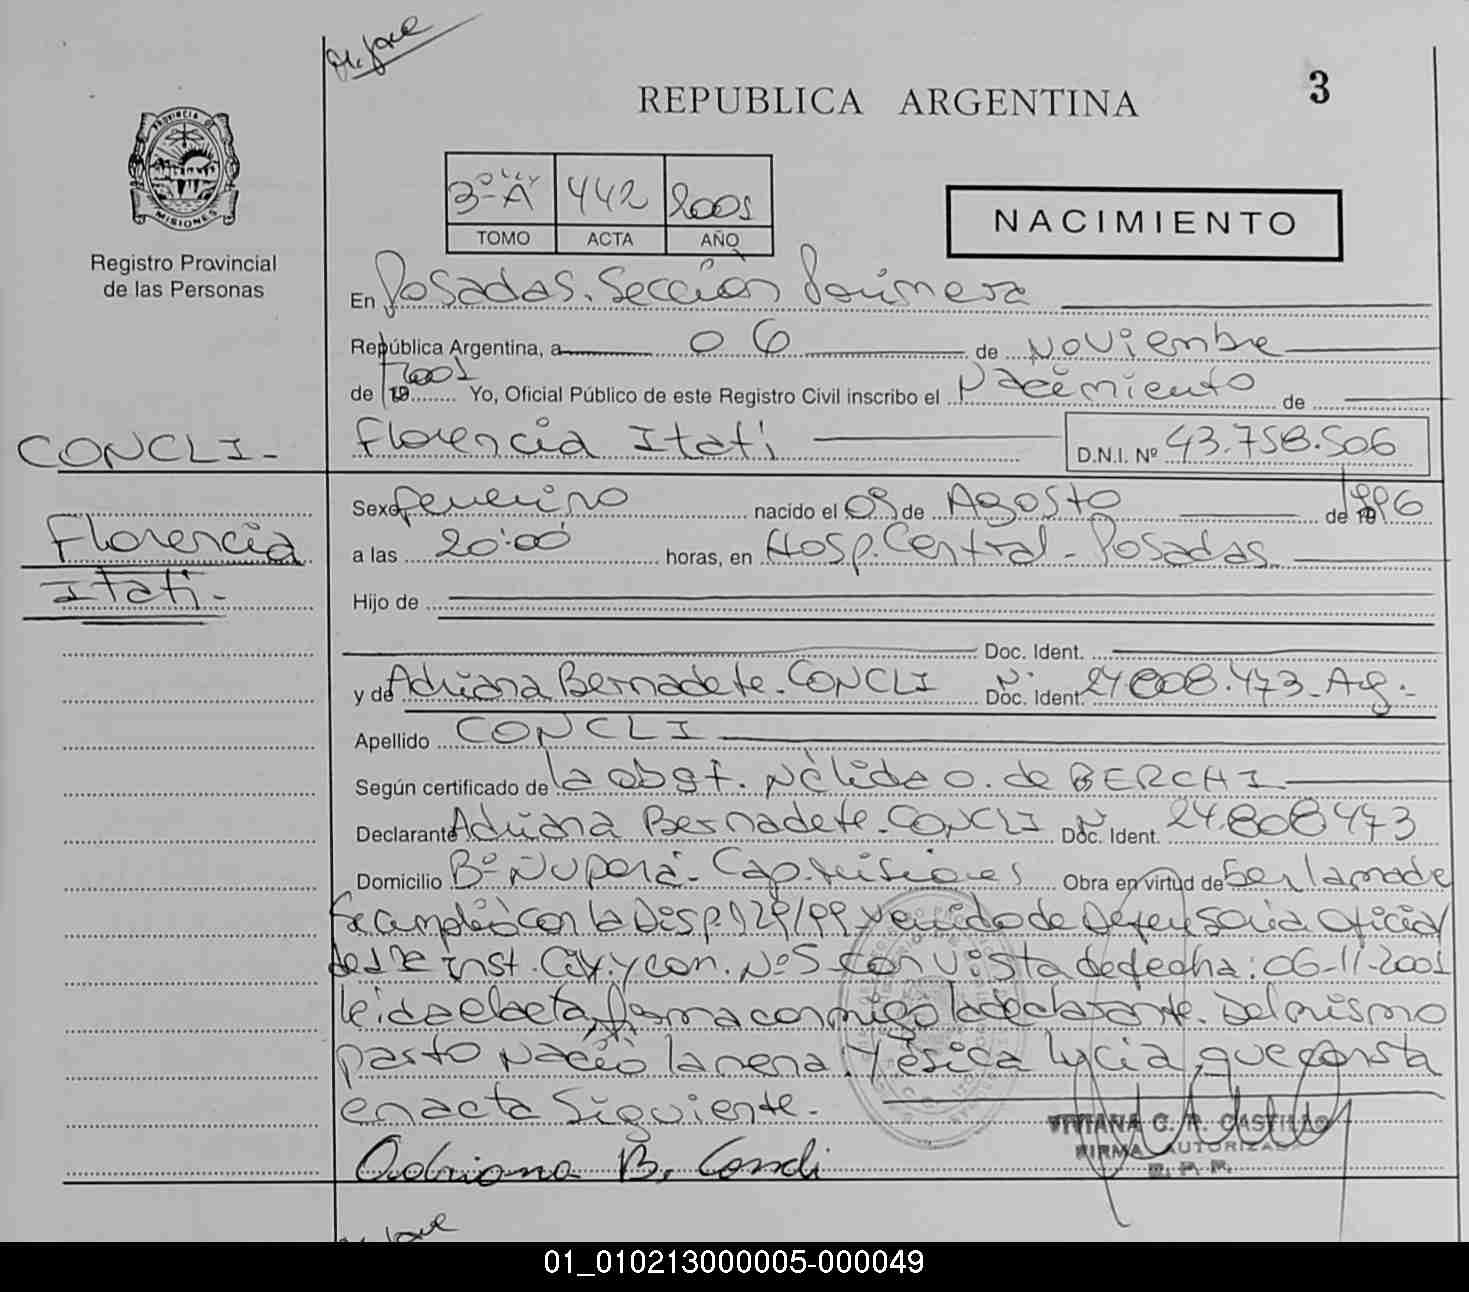 REPUBLICA ARGENTINA
3
PROVINCIA D
MISIONES
Registro Provincial
de las Personas
3º "A" 442 2001
TOMO ACTA AÑO
NACIMIENTO
En Posadas. Sección Primera
República Argentina, a 06 de Noviembre
de 19 2001 Yo, Oficial Público de este Registro Civil inscribo el Nacimiento de
CONCLI-
Florencia Itati
D.N.I. Nº 43.758.506
Florencia
Itati-
Sexo femenino nacido el 09 de Agosto de 1996
a las 20:00 horas, en Hosp. Central - Posadas
Hijo de
Doc. Ident.
y de Adriana Bernadete. CONCLI Doc. Ident. Nº 24808.473-Arg.-
Apellido CONCLI
Según certificado de la obst. Nélida O. de BERCHI
Declarante Adriana Bernadete. CONCLI Doc. Ident. Nº 24.808473
Domicilio Bº Ñu Porá- Cap. Misiones Obra en virtud de Ser la madre
Se cumplió con la Disp. 129/99 y emitido de Defensoria Oficial
de Inst. Civ. y Con. Nº 5 con vista de fecha: 06-11-2001
leida el acta, firma conmigo la declarante. Del mismo
parto nació la nena: Yésica Lycia, que consta
en acta Siguiente.-
Adriana B. Concli
VIVIANA C. R. CASTILLO
FIRMA AUTORIZADA
R. P. P.
01_010213000005-000049